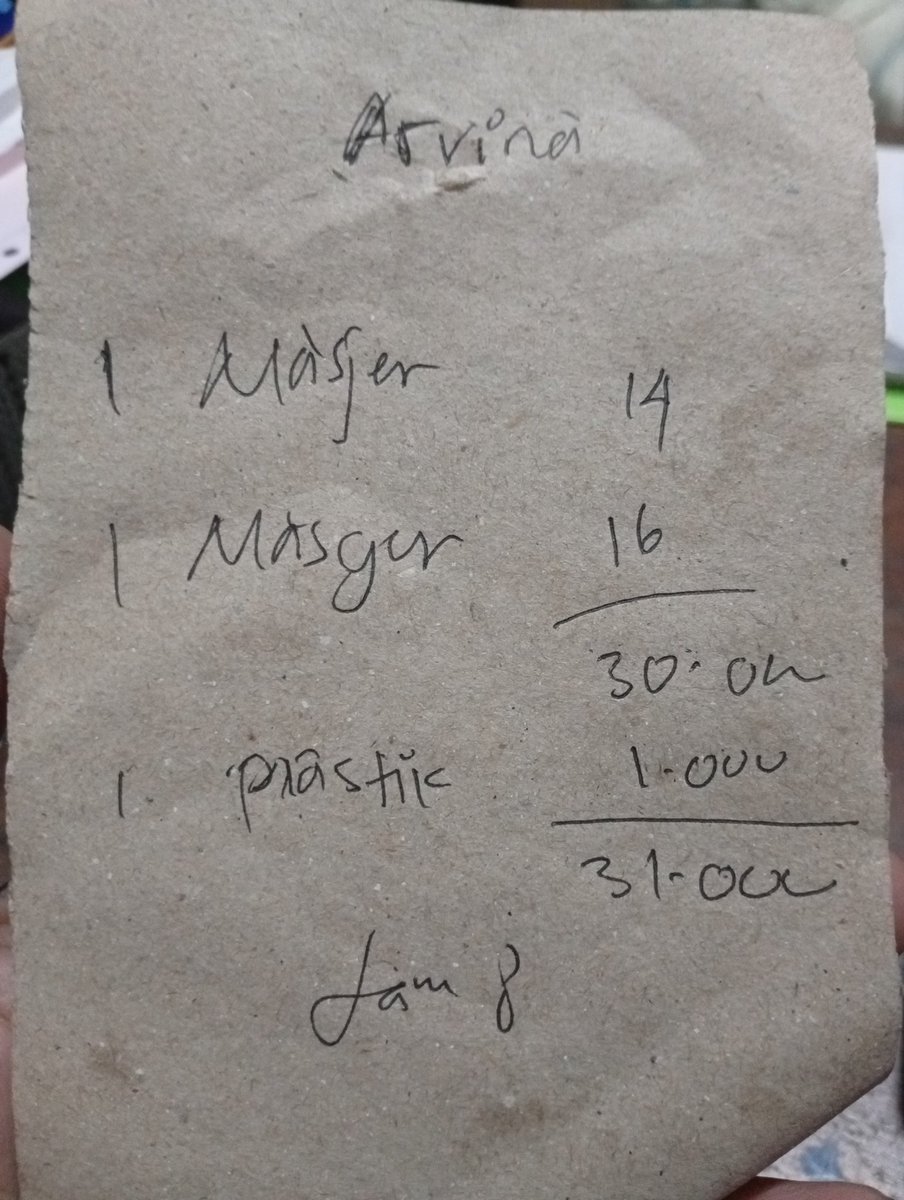 Arvina
1 Masjer 14
1 Masger 16
30.000
1. prastik 1.000
31.000
Jam 8